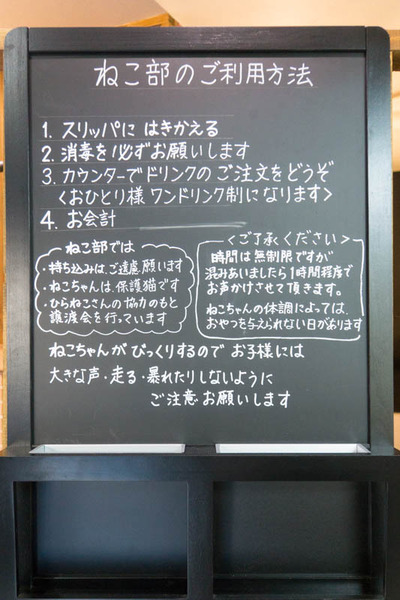 ねこ部のご利用方法
1. スリッパに はきかえる
2. 消毒を必ずお願いします
3. カウンターでドリンクの ご注文をどうぞ
〈おひとり様 ワンドリンク制になります〉
4. お会計
ねこ部では
・持ち込みは、ご遠慮願います
・ねこちゃんは、保護猫です
・ひらねこさんの 協力のもと
譲渡会を行っています
〈ご了承ください〉
時間は無制限ですが
混みあいましたら1時間程度で
お声かけさせて頂きます。
ねこちゃんの体調によっては、
おやつを与えられない日があります
・ねこちゃんが びっくりするので お子様には
大きな声・走る・暴れたりしないように
ご注意お願いします